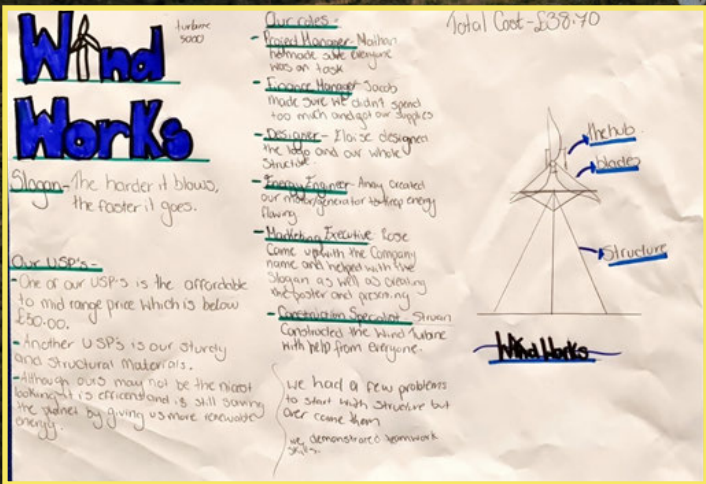 Wind
Works
turbine
5000
Slogan - The harder it blows,
the faster it goes.
Our USP's -
- One of our USP's is the affordable
to mid range price which is below
£50.00.
- Another USP's is our sturdy
and structural Materials.
- Although ours may not be the nicest
looking it is efficent and is still saving
the planet by giving us more renewable
energy.
Our roles -
- Project Manager - Naithan
made sure everyone
was on task
- Finance Manager Jacob
made sure we didn't spend
too much and got our supplies
- Designer - Eloise designed
the logo and our whole
Structure.
- Energy Engineer - created
our motor/generator to keep energy
flowing
- Marketing Executive Rose
Came up with the Company
name and helped with the
Slogan as well as creating
the poster and presening
- Construction Specialist - Struan
Constructed the Wind Turbine
with help from everyone.
we had a few problems
to start with Structure but
over came them
we demonstrated teamwork
skills.
Total Cost - £38.70
the hub
blades
Structure
Wind Works